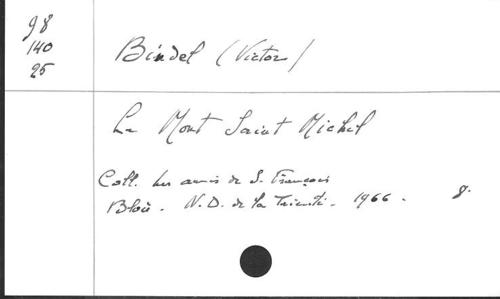 98
140
25
Bindel (Victor)
Le Mont Saint Michel
Coll. Les amis de S. François
Blois. N.D. de la Trinité. 1966. 8.